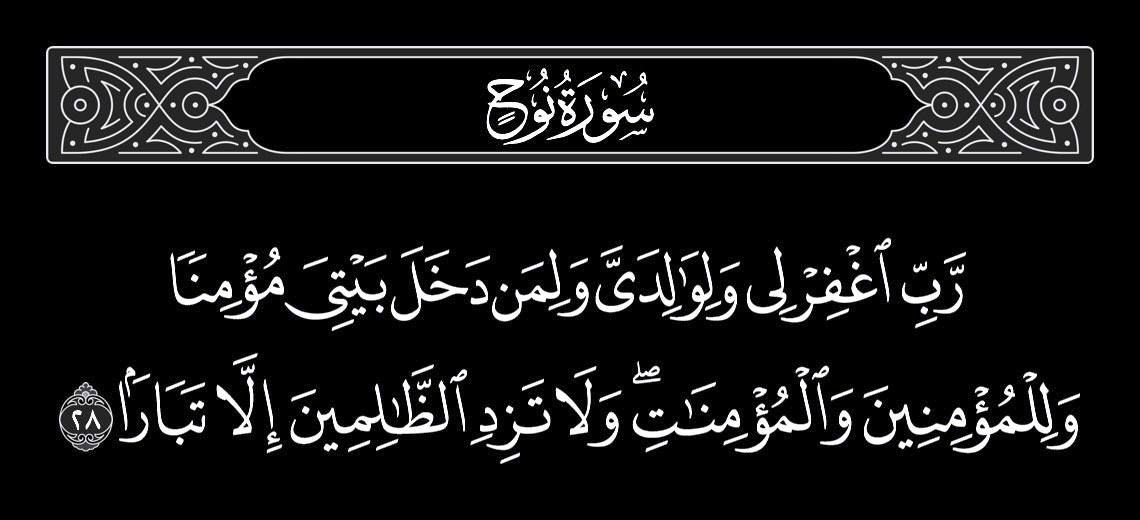 سُورَةُ نُوحٍ
رَّبِّ ٱغْفِرْ لِى وَلِوَٰلِدَىَّ وَلِمَن دَخَلَ بَيْتِىَ مُؤْمِنًا
وَلِلْمُؤْمِنِينَ وَٱلْمُؤْمِنَٰتِ ۖ وَلَا تَزِدِ ٱلظَّٰلِمِينَ إِلَّا تَبَارًۢا ٢٨